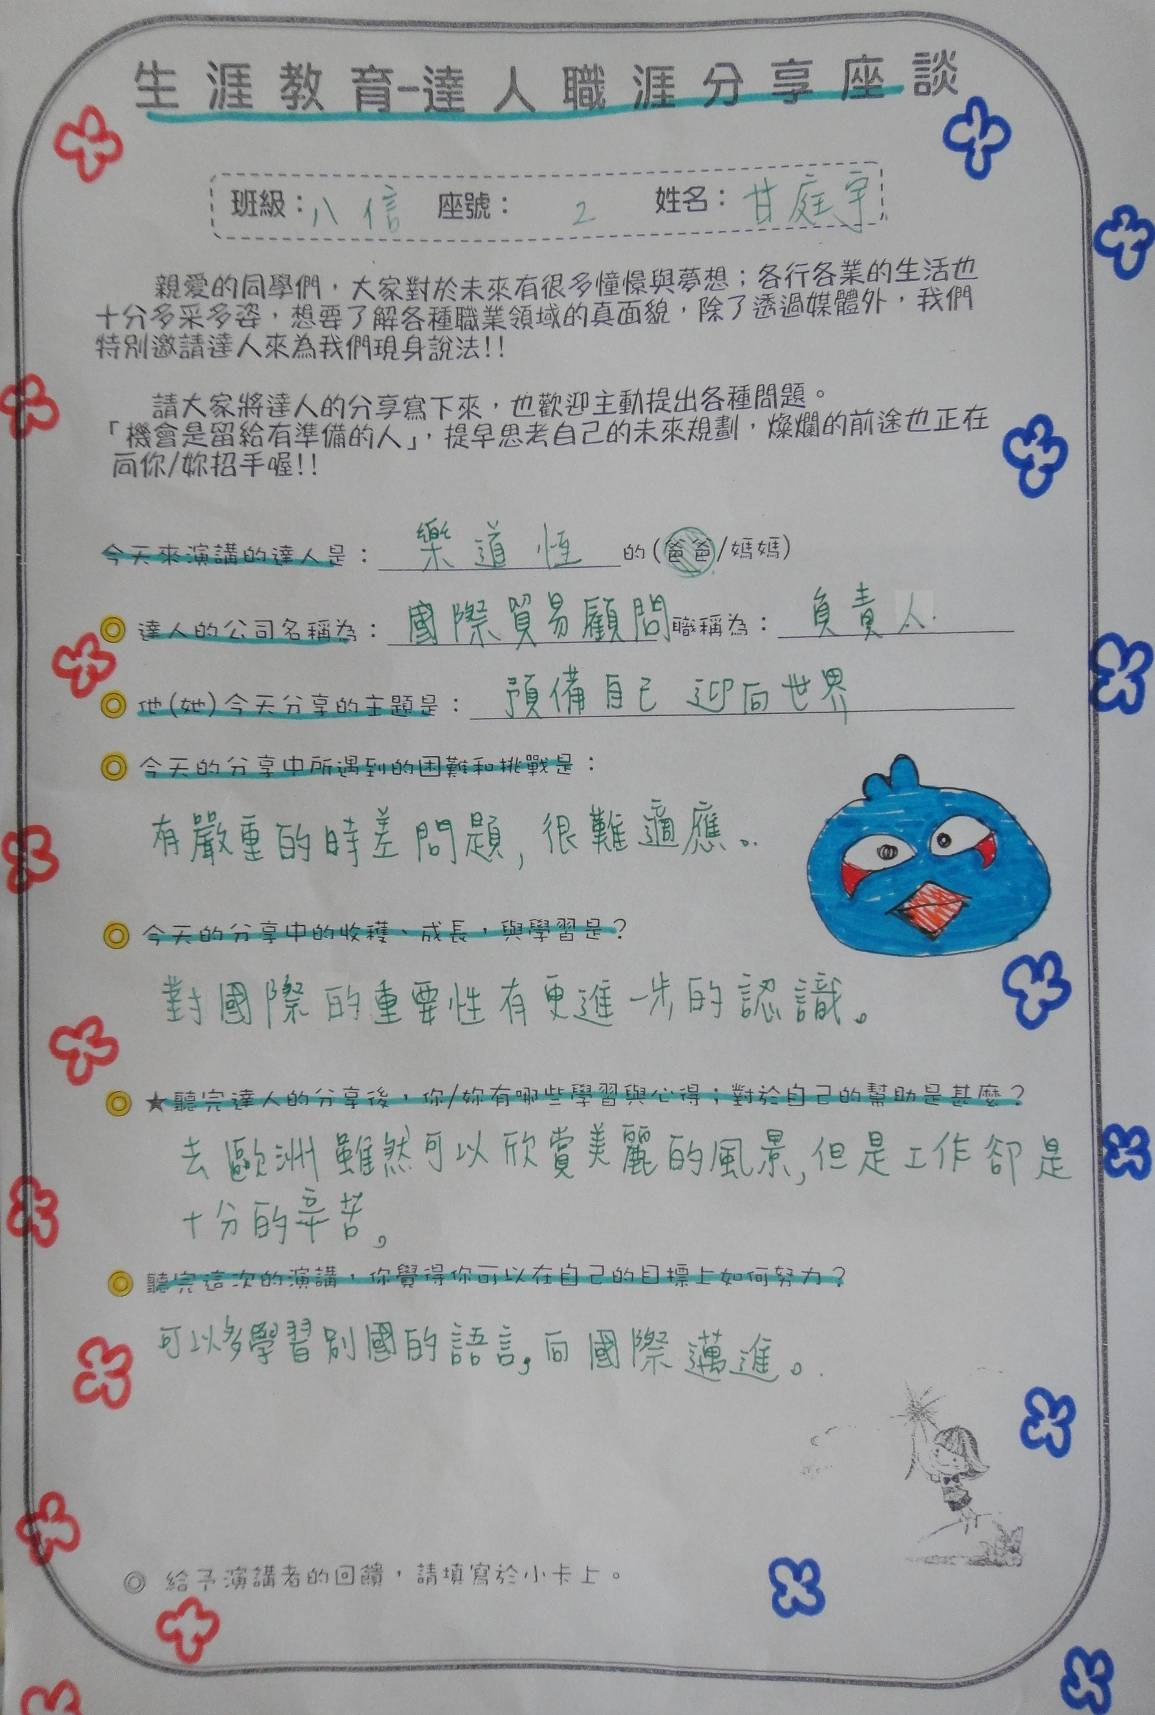 生涯教育-達人職涯分享座談
班級：八信 座號：2 姓名：甘庭宇
親愛的同學們，大家對於未來有很多憧憬與夢想；各行各業的生活也
十分多采多姿，想要了解各種職業領域的真面貌，除了透過媒體外，我們
特別邀請達人來為我們現身說法!!
請大家將達人的分享寫下來，也歡迎主動提出各種問題。
「機會是留給有準備的人」，提早思考自己的未來規劃，燦爛的前途也正在
向你/妳招手喔!!
今天來演講的達人是：樂道恆的(爸爸/媽媽)
◎ 達人的公司名稱為：國際貿易顧問職稱為：負責人
◎ 他(她)今天分享的主題是：預備自己 迎向世界
◎ 今天的分享中所遇到的困難和挑戰是：
有嚴重的時差問題，很難適應。
◎ 今天的分享中的收穫、成長，與學習是？
對國際的重要性有更進一步的認識。
◎ ★聽完達人的分享後，你/妳有哪些學習與心得；對於自己的幫助是甚麼？
去歐洲雖然可以欣賞美麗的風景，但是工作卻是
十分的辛苦。
◎ 聽完這次的演講，你覺得你可以在自己的目標上如何努力？
可以多學習別國的語言，向國際邁進。
◎ 給予演講者的回饋，請填寫於小卡上。